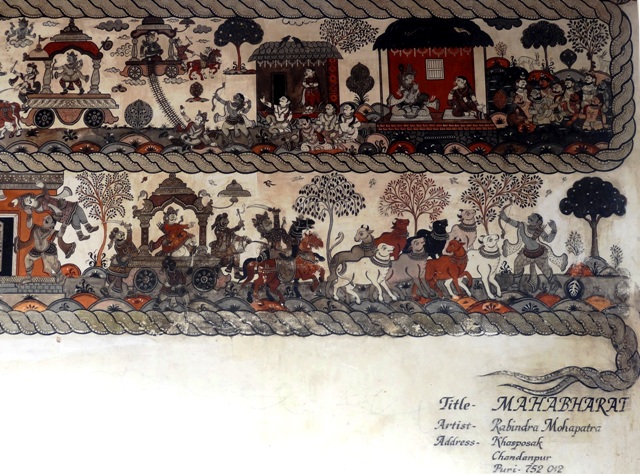 Title- MAHABHARAT
Artist- Rabindra Mohapatra
Address- Khasposak
Chandanpur
Puri- 752 012